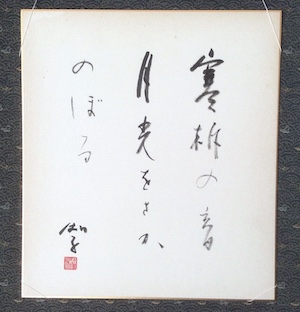 寒柝の音
月光をさか
のぼる